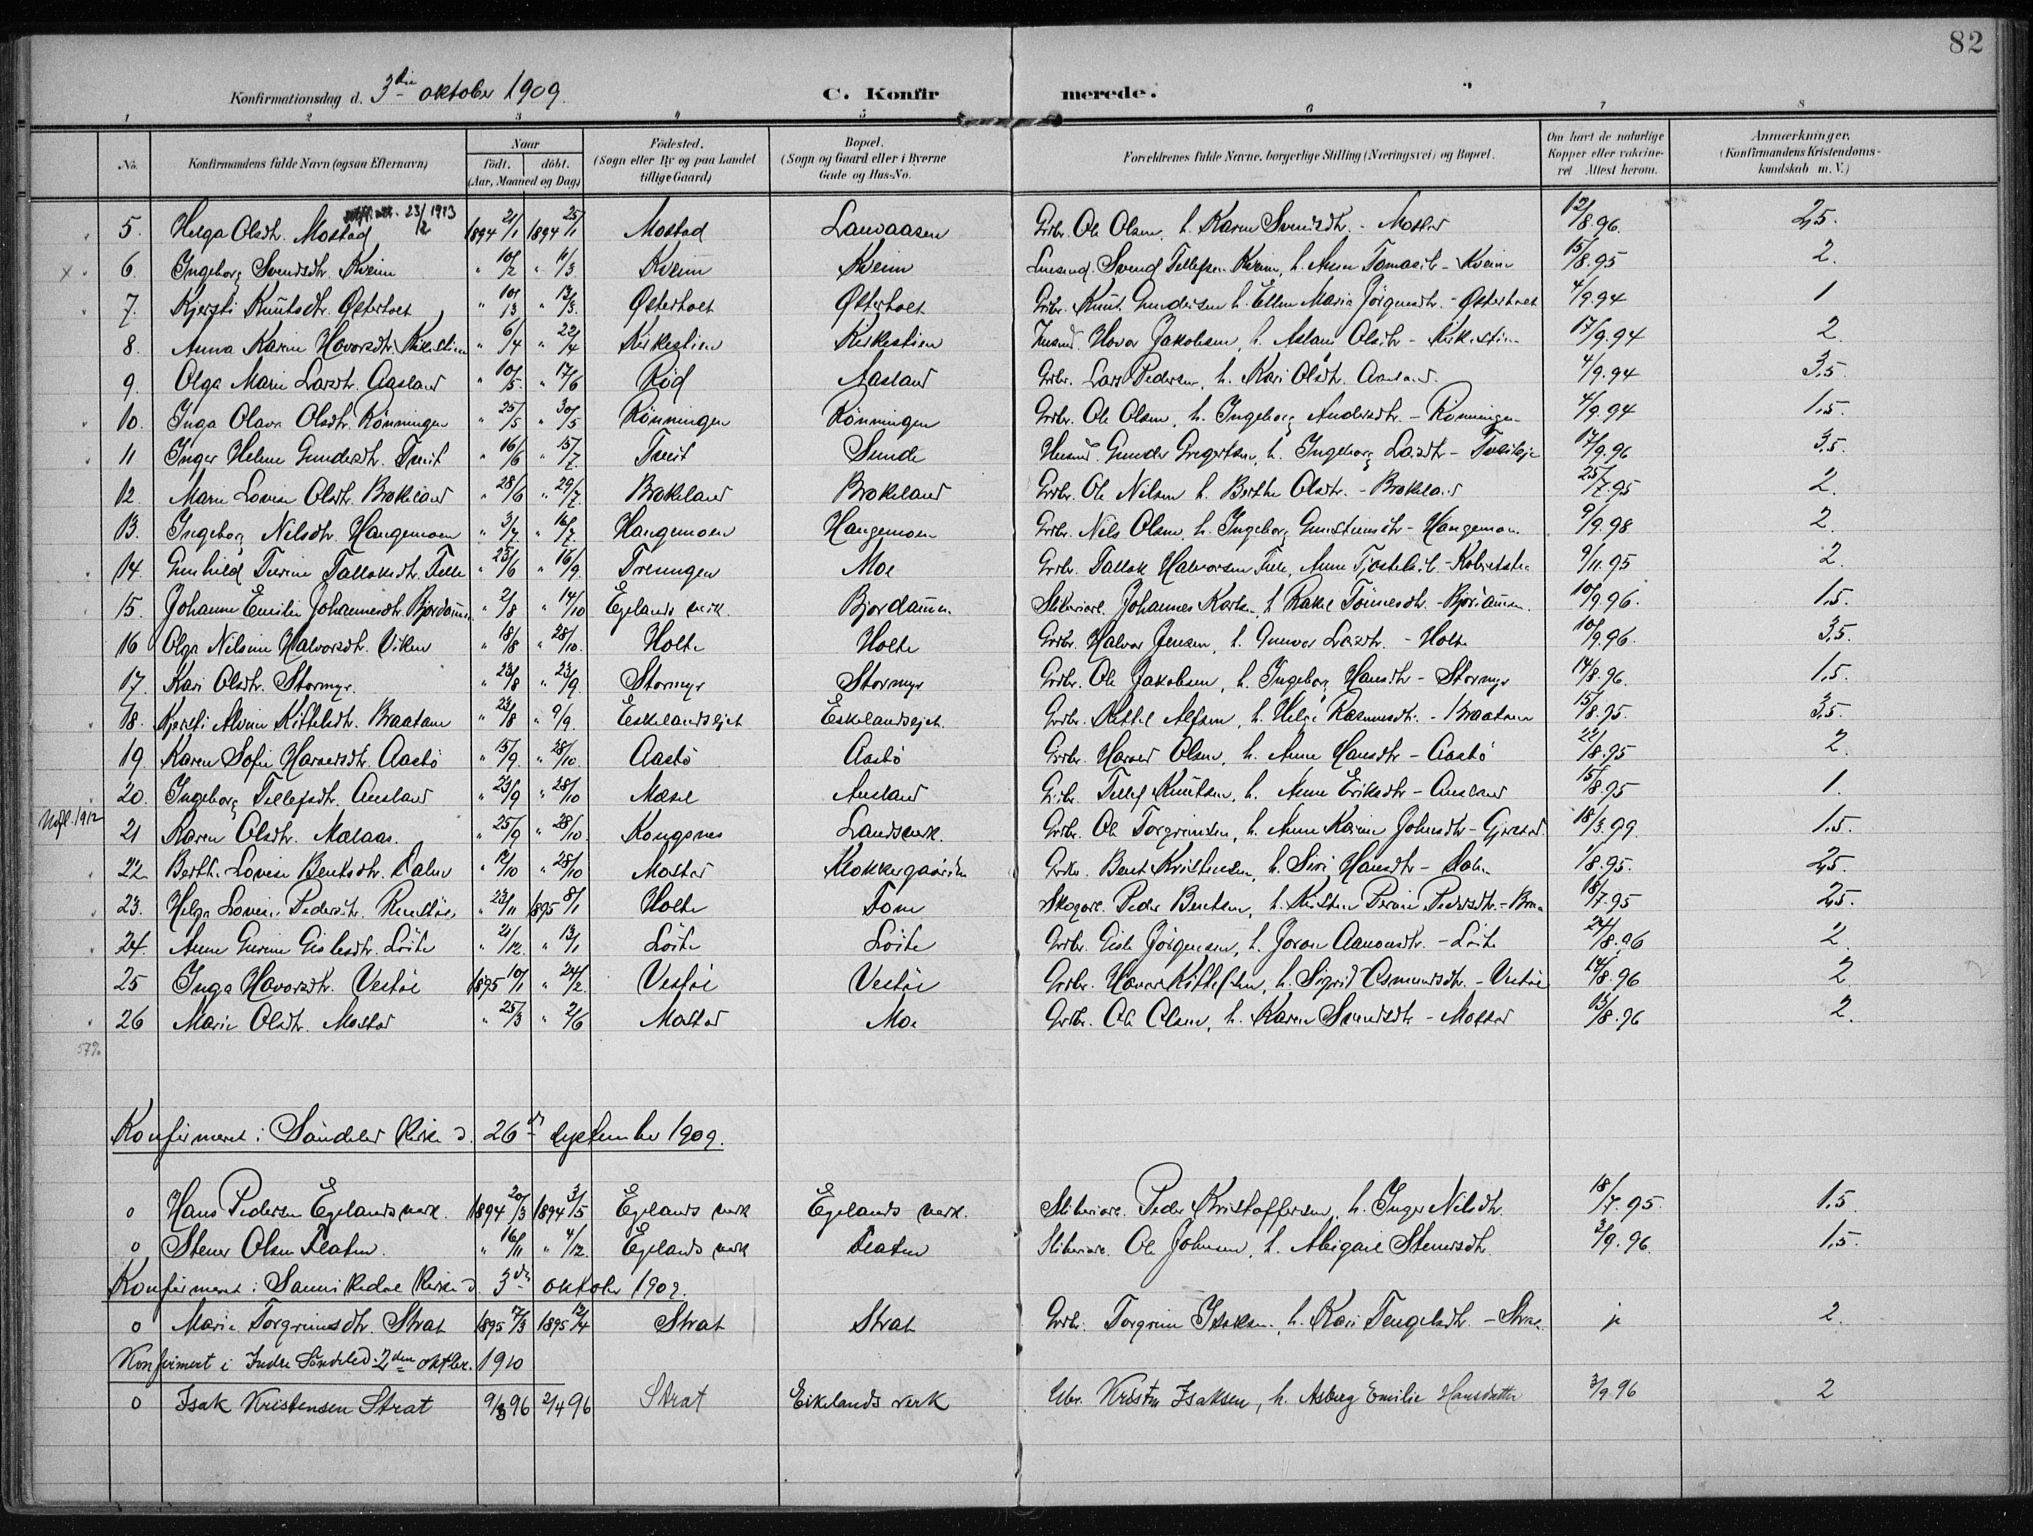 82
Konfirmationsdag d. 3die oktober 1909. C. Konfirmerede.
1 2 3 4 5 6 7 8
No. Konfirmandens fulde Navn (ogsaa Efternavn) Naar født. døbt. (Aar, Maaned og Dag) Fødested. (Sogn eller By og paa Landet tillige Gaard) Bopæl. (Sogn og Gaard eller i Byerne Gade og Hus-No. Forældrenes fulde Navne, borgerlige Stilling (Næringsvei) og Bopæl. Om havt de naturlige Kopper eller vakcineret Attest herom. Anmærkninger. (Konfirmandens Kristendomskundskab m. V.)
23/2 1913
5. Helga Olsdtr. Mostad 1894 21/1 1894 25/1 Mostad Lauvaasen Grdbr. Ole Olsen, h. Karen Svendsdtr. - Mostad 12/8.96. 2,5.
x 6. Ingeborg Svendsdtr. Kveim " 10/2 " 11/3 Kveim Kveim Svend Tellefsen Kveim, h. Anne - Kveim 15/8.95 2.
7. Kjersti Knutsdtr. Østerholt " " 13/3. Østerholt Østerholt Grdbr. Knut Gundersen h. Ellen Maria Jörgensdtr. - Østerholt 4/9.94 1
8. Anna Karine Hovorsdtr. Kirkestien " 6/4 " 22/4 Kirkestien Kirkestien Husmd. Hovor Jakobsen, h. Aslaug Olsdtr - Kirkestien 17/9.94 2.
9. Olga Marie Larsdtr. Aasland " 10/5. " 17/6 Rød Aasland Grdbr. Lars Pedersen, h. Kari Olsdtr. Aasland. 4/9.94 3,5.
10. Inga Olava Olsdtr. Rønningen " 25/5 " 30/5 Rønningen Rønningen Grdbr. Ole Olsen, h. Ingeborg Andersdtr. - Rønningen 4/9.94 1,5.
11 Inger Helene Gundersdtr. Tveit " 16/6 " 15/7. Tveit Sunde Husmd. Gunder Gregertsen, h. Ingeborg Larsdtr - 17/9.96 3,5.
12. Marie Lovise Olsdtr. Brokeland " 28/6 " 29/7. Brokeland Brokeland Grdbr. Ole Nilsen h. Berthe Olsdtr. - Brokeland 25/7.95 2.
13. Ingeborg Nilsdtr. Hangemoen " 3/7 " 16/7. Hangemoen Hangemoen Grdbr. Nils Olsen, h. Ingeborg Gunsteinsdtr - Hangemoen 9/9.98 2.
14. Gunhild Turine Tallaksdtr. Felle " 25/6 " 16/9. Treungen Moe Grdbr. Tallak Halvorsen Felle, Anne 9/11.95 2
15. Johanne Emilie Johannesdtr. Bjordammen " 2/8 " 14/10 Egelands verk. Bjordammen Johannes h. Rakel Tönnesdtr. - Bjordammen. 10/9.96. 1,5.
16 Olga Nilsine Halvorsdtr. Viken " 18/8 " 28/10. Holte Holte Grdbr. Halvor Jensen, h. Gunvor Larsdtr. - Holte 10/9.96. 3,5.
17. Kari Olsdtr. Stormyr. " 23/8 " 23/9. Stormyr Stormyr Grdbr. Ole Jakobsen, h. Ingeborg Hansdtr - Stormyr 14/8.96. 1,5.
18. Kjersti Alvine Kittelsdtr. Braatane " 23/8 " 9/9. Eskelandsejet Esklandsejet. Grdbr. Kittel Alfsen, h. Helge Rasmusdtr. - Braatane 15/8.95. 3,5.
19. Karen Sofie Haraersdtr. Aastø " 15/9. " 28/10. Aastø Aastø Grdbr. Olsen, h. Anne Hansdtr - Aastø 22/8.95 2.
20. Ingeborg Tellefsdtr. Ausland " 23/9 " 28/10 Mæsel Ausland Grdbr. Tellef Knutsen, h. Anne Eriksdtr - Ausland 15/8.95 1.
1912
21 Karen Olsdtr. Mælaas. " 25/9 " 28/10. Kongsnes Landsverk. Grdbr. Ole Torgrimsen, h. Anne Karine Johnsdtr - Gjerstad. 18/3.99. 1,5.
22. Berth. Lovise Bentsdtr. Dalen " 12/10 " 28/10 Mostad Grdbr. Bent Kristensen, h. Siri Hansdtr - Dalen 2,5.
23. Helga Lovise Pedersdtr. " 23/11 1895 8/1 Holte Peder Bentsen, h. Pedersdtr. 18/7.95 2,5.
24. Anne Gurine Gislesdtr. Löite " 2/12. " 13/1 Löite Löite Grdbr. Gisle Jörgensen, h. Joron Aanonsdtr. - Löite 24/8.96 2.
25 Inga Hovorsdtr. Vestöl 1895 10/1 " 24/2. Vestöl Vestöl Grdbr. Hovor Kittelsen, h. Sigrid Osmundsdtr. - Vestöl 14/8.96 2.
26 Marie Olsdtr. Mostad " 25/3 " 2/6 Mostad Moe Grdbr. Ole Olsen, h. Karen Svendsdtr - Mostad 13/8.96 2.
Konfirmeret i Söndeled Kirke d. 26de september 1909.
0 Hans Pedersen Egelands verk. 1894 20/3 1894 3/5 Egelands verk Egelands verk. Peder Kristoffersen, h. Inger Nilsdtr. 18/7.95. 1,5.
0 Stener Olsen " 16/11 " 4/12. Egelands verk Ole Johnsen, h. Abigael Stenersdtr. 3/9.96. 1,5.
Konfirmeret i Sannikedal Kirke d. 3die oktober 1909.
0 Marie Torgrimsdtr. Strat 1895 1895 Strat Strat Grdbr. Torgrim Isaksen, h. Kari Tengelsdtr. - Strat ja 2.
Konfirmert i Indre Söndeled 2den oktber. 1910
0 Isak Kristensen Strat 9/3 96 2/4 96 Strat Eikelands verk Kristen Isaksen, h. Asborg Emilie Hansdatter 3/9.96 2